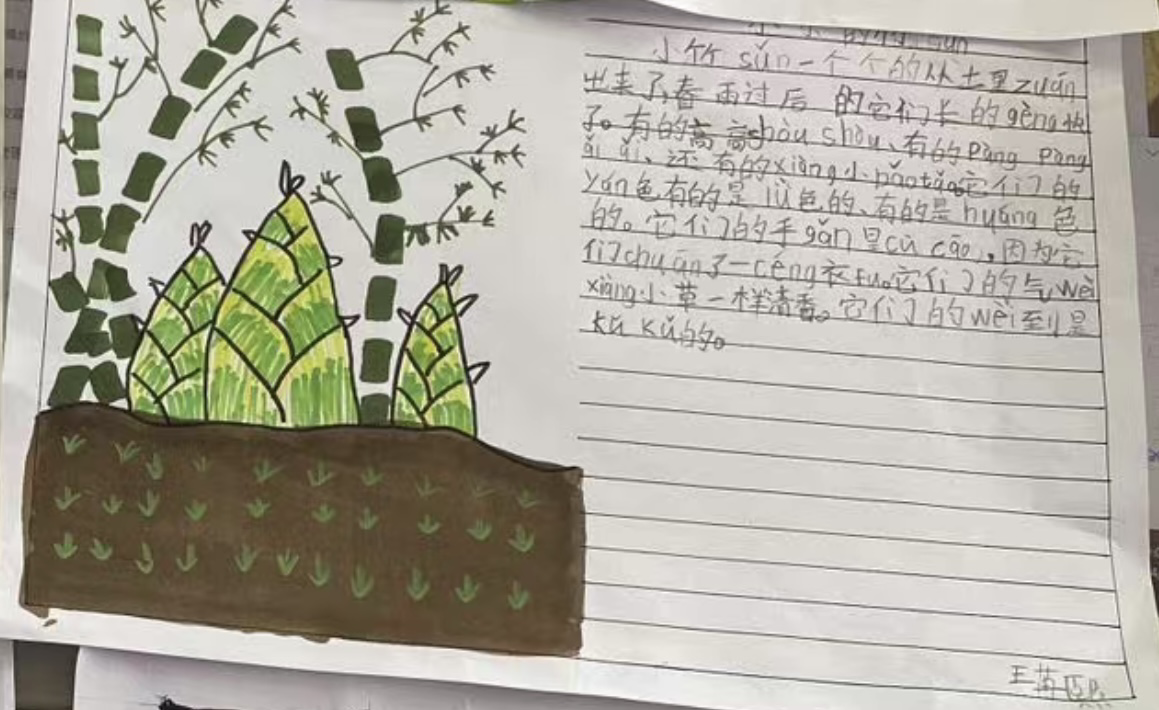 小竹sǔn一个个的从土里zuān
出来了，春雨过后 的它们长的gèng快
了。有的高高shòu shòu、有的pàng pàng
ǎi ǎi、还有的xiàng小bǎotǎ。它们的
yán色有的是lǜ色的、有的是huáng色
的。它们的手gǎn是cū cāo，因为它
们chuān了一céng衣fu。它们的气wèi
xiàng小草一样清香。它们的wèi到是
kǔ kǔ的。